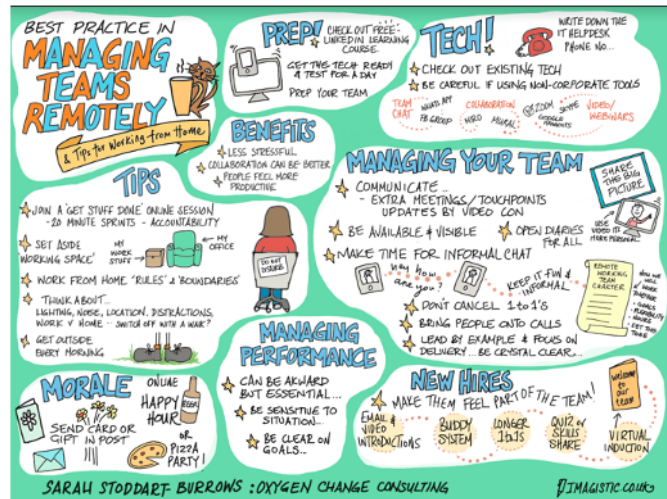 BEST PRACTICE IN
MANAGING
TEAMS
REMOTELY
& Tips for Working from Home
PREP!
CHECK OUT FREE
LINKEDIN LEARNING
COURSE
GET THE TECH READY
& TEST FOR A DAY
PREP YOUR TEAM
TECH!
WRITE DOWN THE
IT HELPDESK
PHONE NO...
CHECK OUT EXISTING TECH
BE CAREFUL IF USING NON-CORPORATE TOOLS
TEAM
CHAT
WHATSAPP
FB GROUP
COLLABORATION
MIRO
MURAL
ZOOM
SKYPE
GOOGLE
HANGOUTS
VIDEO/
WEBINARS
BENEFITS
LESS STRESSFUL
COLLABORATION CAN BE BETTER
PEOPLE FEEL MORE
PRODUCTIVE
TIPS
JOIN A 'GET STUFF DONE' ONLINE SESSION
- 20 MINUTE SPRINTS - ACCOUNTABILITY
SET ASIDE
'WORKING SPACE'
MY
WORK
STUFF
MY
OFFICE
WORK FROM HOME 'RULES' & 'BOUNDARIES'
THINK ABOUT...
LIGHTING, NOISE, LOCATION, DISTRACTIONS,
WORK V HOME - SWITCH OFF WITH A WALK?
GET OUTSIDE
EVERY MORNING
DO NOT
DISTURB
MANAGING YOUR TEAM
COMMUNICATE...
- EXTRA MEETINGS/TOUCHPOINTS
UPDATES BY VIDEO CON
BE AVAILABLE & VISIBLE
OPEN DIARIES
FOR ALL
MAKE TIME FOR INFORMAL CHAT
Hey how
are you?
KEEP IT FUN &
INFORMAL
DON'T CANCEL 1 to 1's
BRING PEOPLE ONTO CALLS
LEAD BY EXAMPLE & FOCUS ON
DELIVERY... BE CRYSTAL CLEAR...
SHARE
THE BIG
PICTURE
USE
VIDEO ITS
MORE PERSONAL
REMOTE
WORKING
TEAM
CHARTER
HOW WE
WILL
WORK
TOGETHER
GOALS
FLEXIBILITY
HOURS
MANAGING
PERFORMANCE
CAN BE AKWARD
BUT ESSENTIAL...
BE SENSITIVE TO
SITUATION...
BE CLEAR ON
GOALS...
MORALE
SEND CARD OR
GIFT IN POST
ONLINE
HAPPY
HOUR
BEER
OR
PIZZA
PARTY!
NEW HIRES
MAKE THEM FEEL PART OF THE TEAM!
EMAIL &
VIDEO
INTRODUCTIONS
BUDDY
SYSTEM
LONGER
1to1s
QUIZ or
SKILLS
SHARE
Welcome
to our
team
VIRTUAL
INDUCTION
SARAH STODDART-BURROWS : OXYGEN CHANGE CONSULTING
IMAGISTIC.co.uk